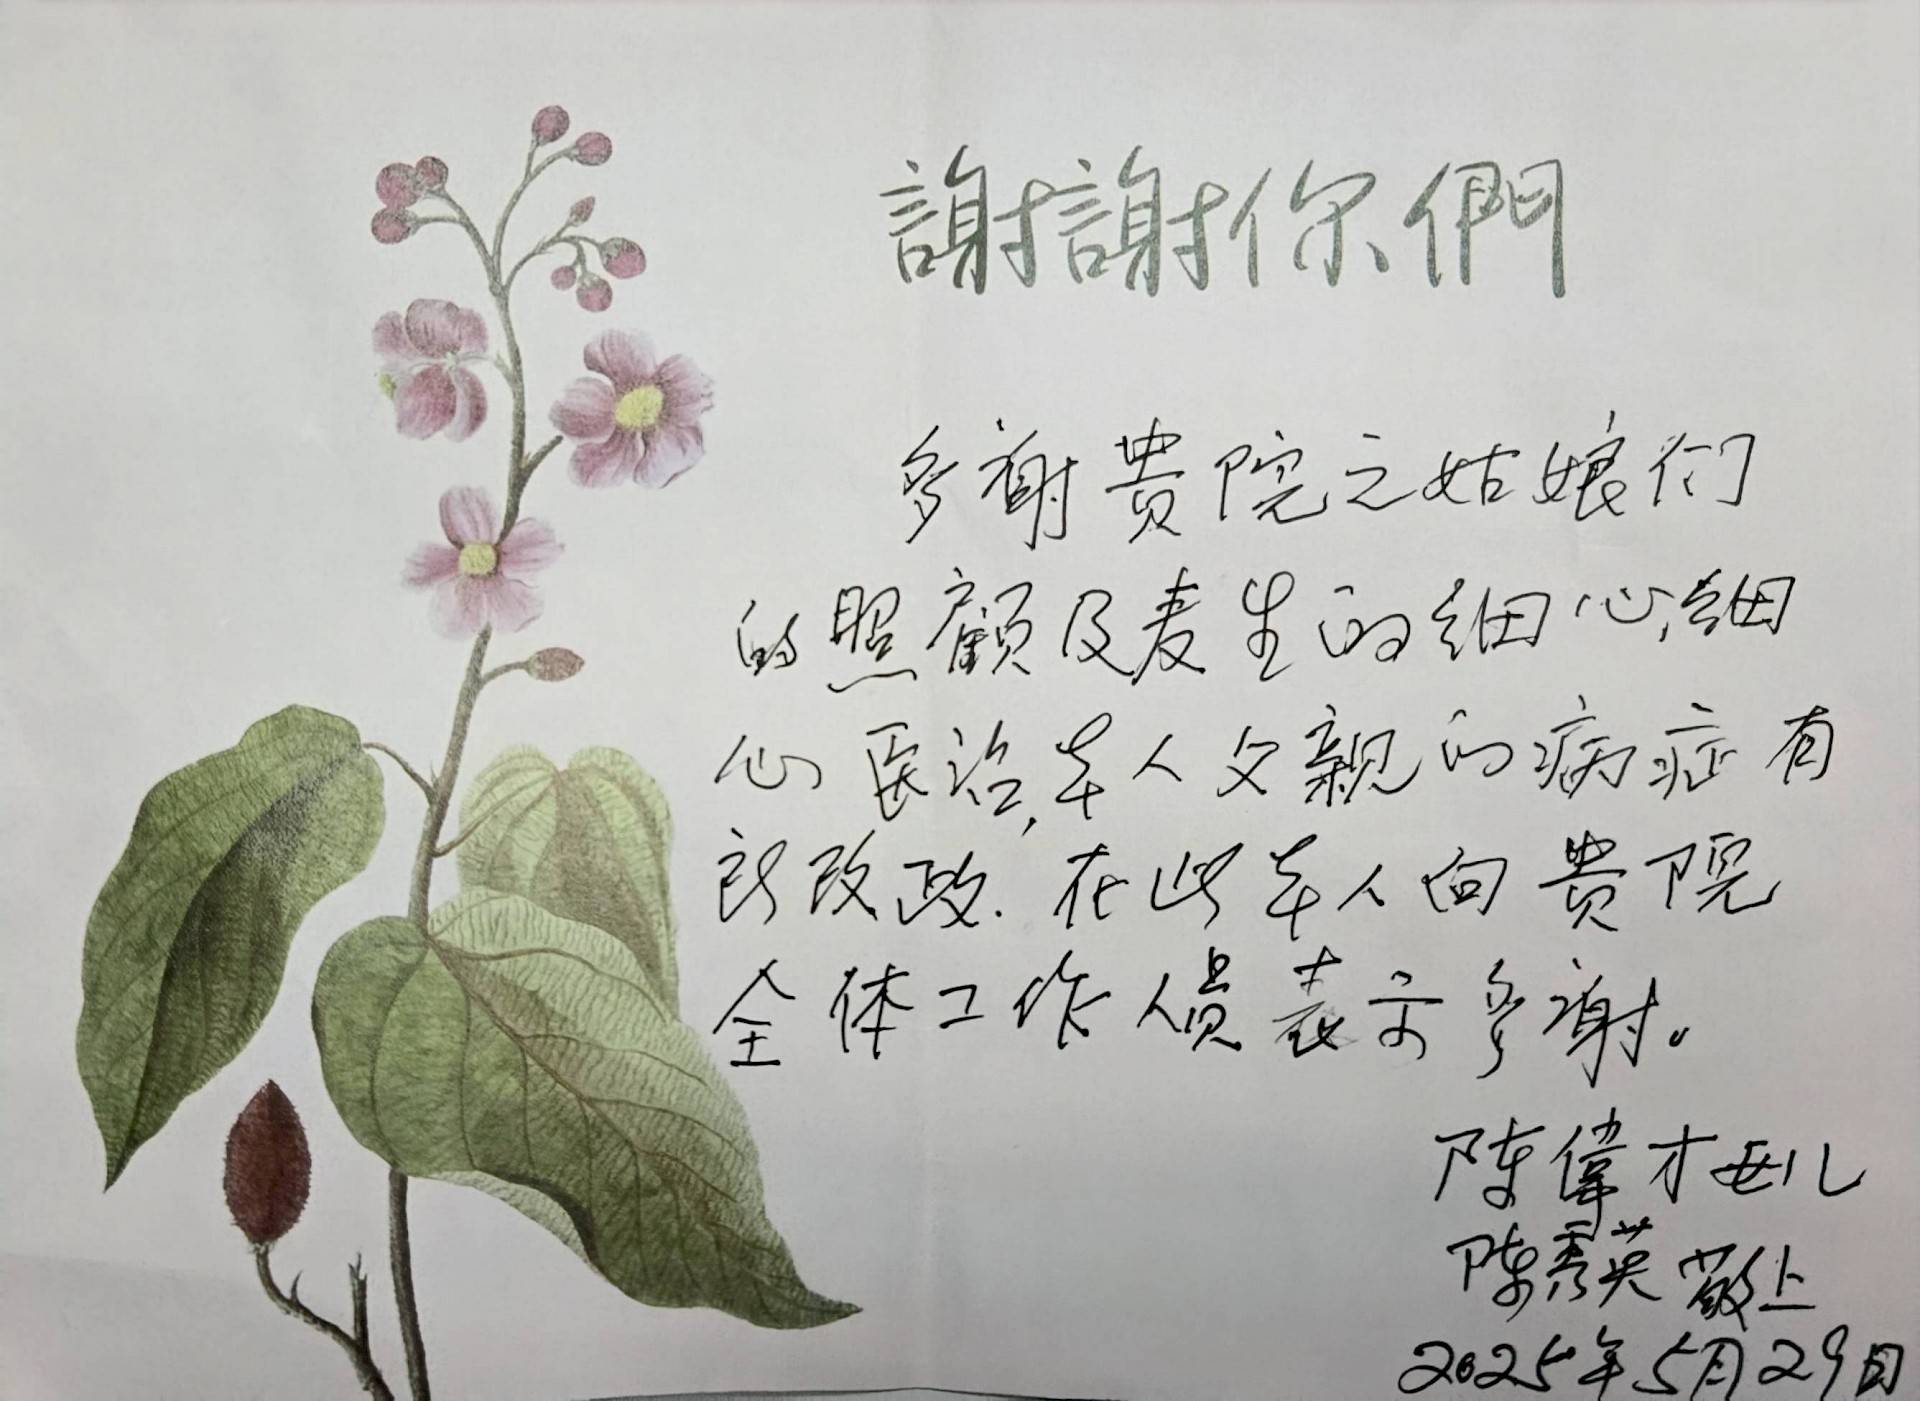 謝謝你們
多謝貴院之姑娘们
的照顧及麦生的细心,細
心医治,本人父親的病症有
所改政.在此本人向貴院
全体工作人員表示多謝。
陈偉才女儿
陈秀英 敬上
2025年5月29日